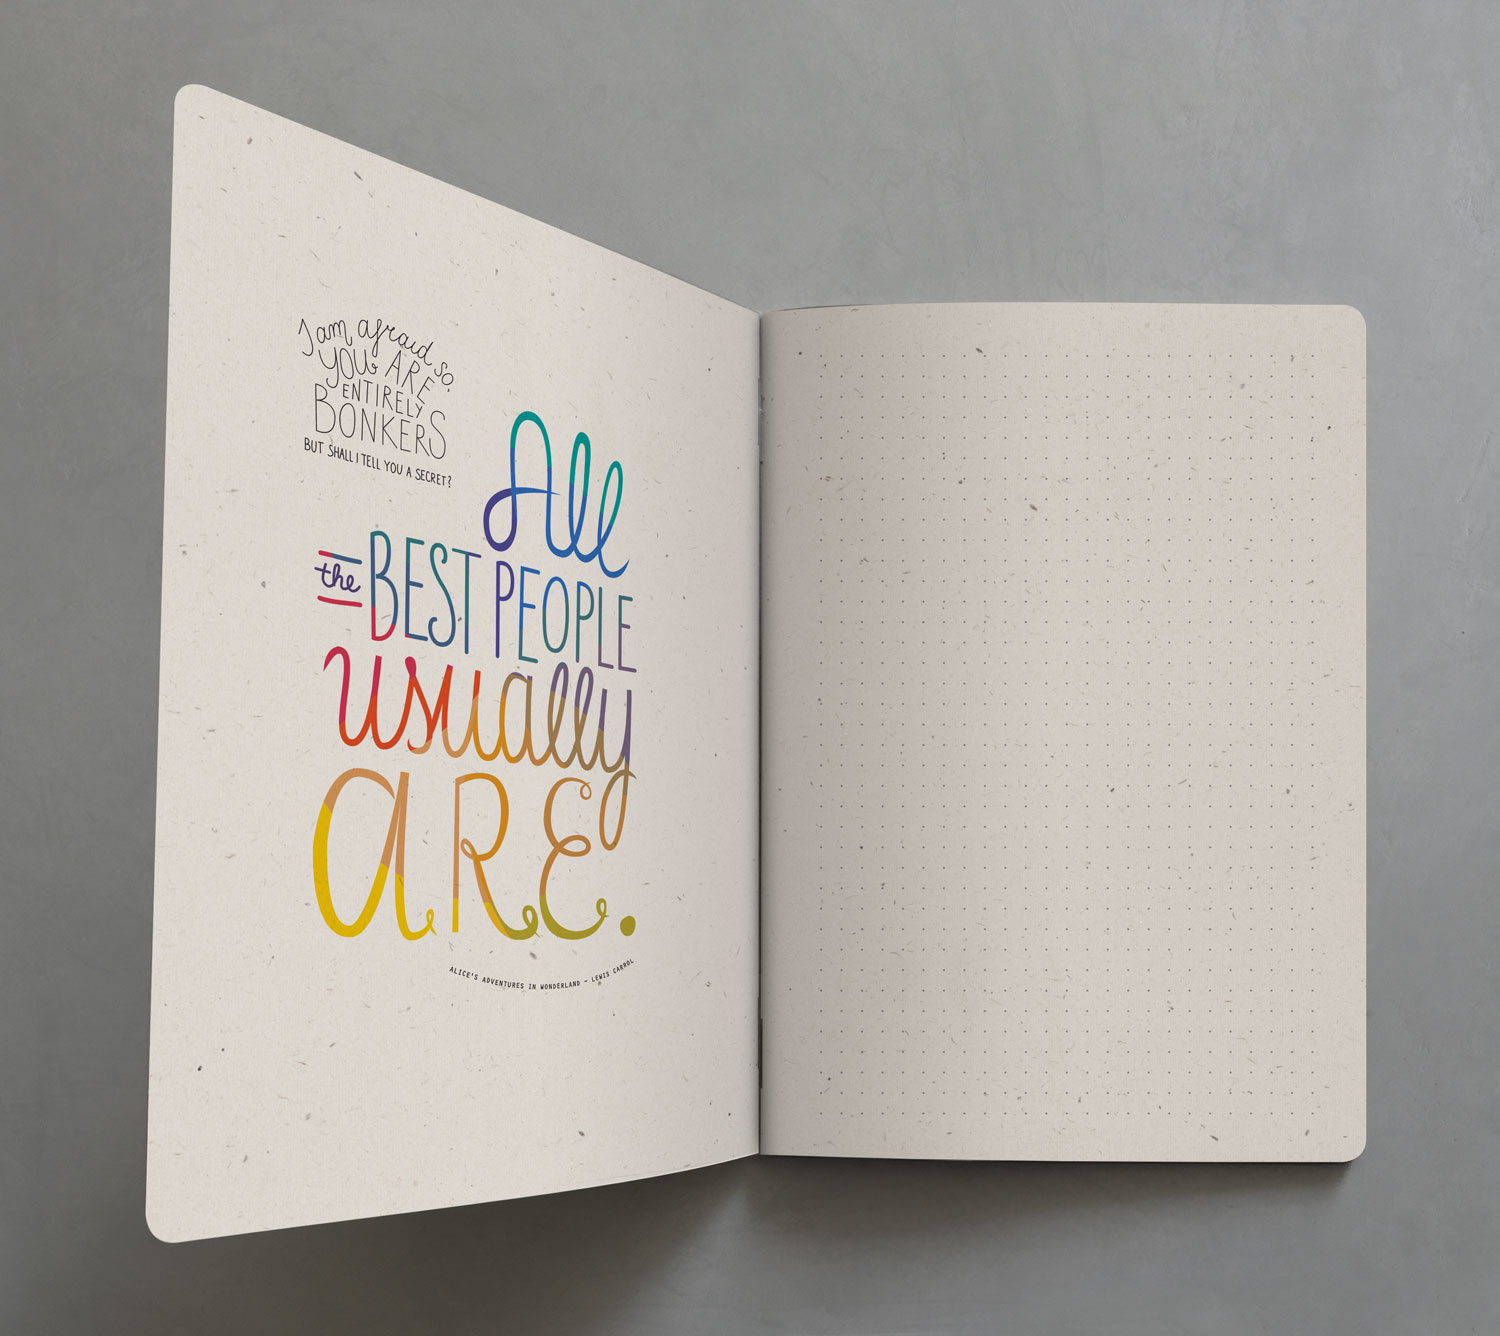 I am afraid so,
YOU ARE
ENTIRELY
BONKERS
BUT SHALL I TELL YOU A SECRET?
All
the BEST PEOPLE
usually
ARE.
ALICE'S ADVENTURES IN WONDERLAND - LEWIS CARROL